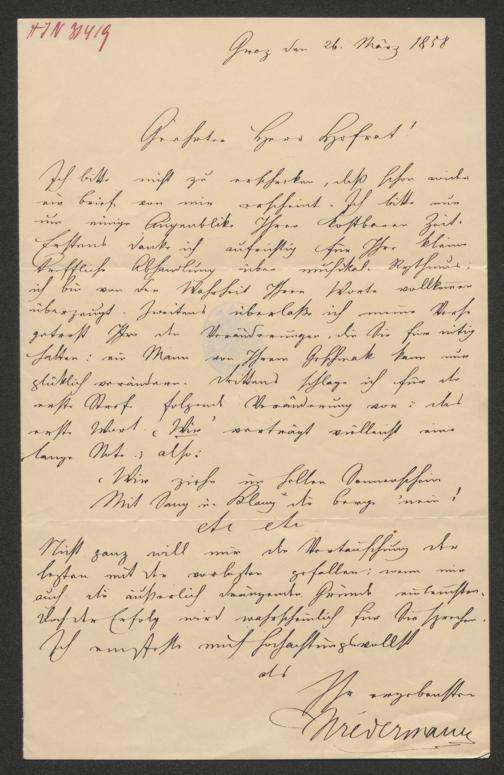 HIN 31419
Graz den 26. März 1858
Geehrter Herr Hofrat!
Ich bitte nicht zu erschrecken, daß schon wieder
ein Brief von mir erscheint. Ich bitte nur
um einige Augenblike Ihrer kostbaren Zeit.
Erstens danke ich aufrichtig für Ihre kleine
treffliche Abhandlung über musikal. Rythmus,
ich bin von der Wahrheit Ihrer Worte vollkommen
überzeugt. Zweitens überlaße ich meine Verse
getrost Ihnen die Veränderungen, die Sie für nötig
halten: ein Mann von Ihrem Geschmak kann nur
glüklich verändern. Drittens schlage ich für die
erste Strof folgende Veränderung vor: das
erste Wort „Wir“ verträgt vielleicht eine
lange Note; also:
„Wir ziehn im hellen Sonnenschein
Mit Sang u. Klang die Berge 'nein!
etc etc
Nicht ganz will mir die Vertauschung der
lezten mit der vorlezten gefallen: wenn mir
auch die äußerlich drängenden Gründe einleuchten.
Doch der Erfolg wird wahrscheinlich für Sie sprechen.
Ich empfehle mich hochachtungsvollst
als
Ihr ergebenster